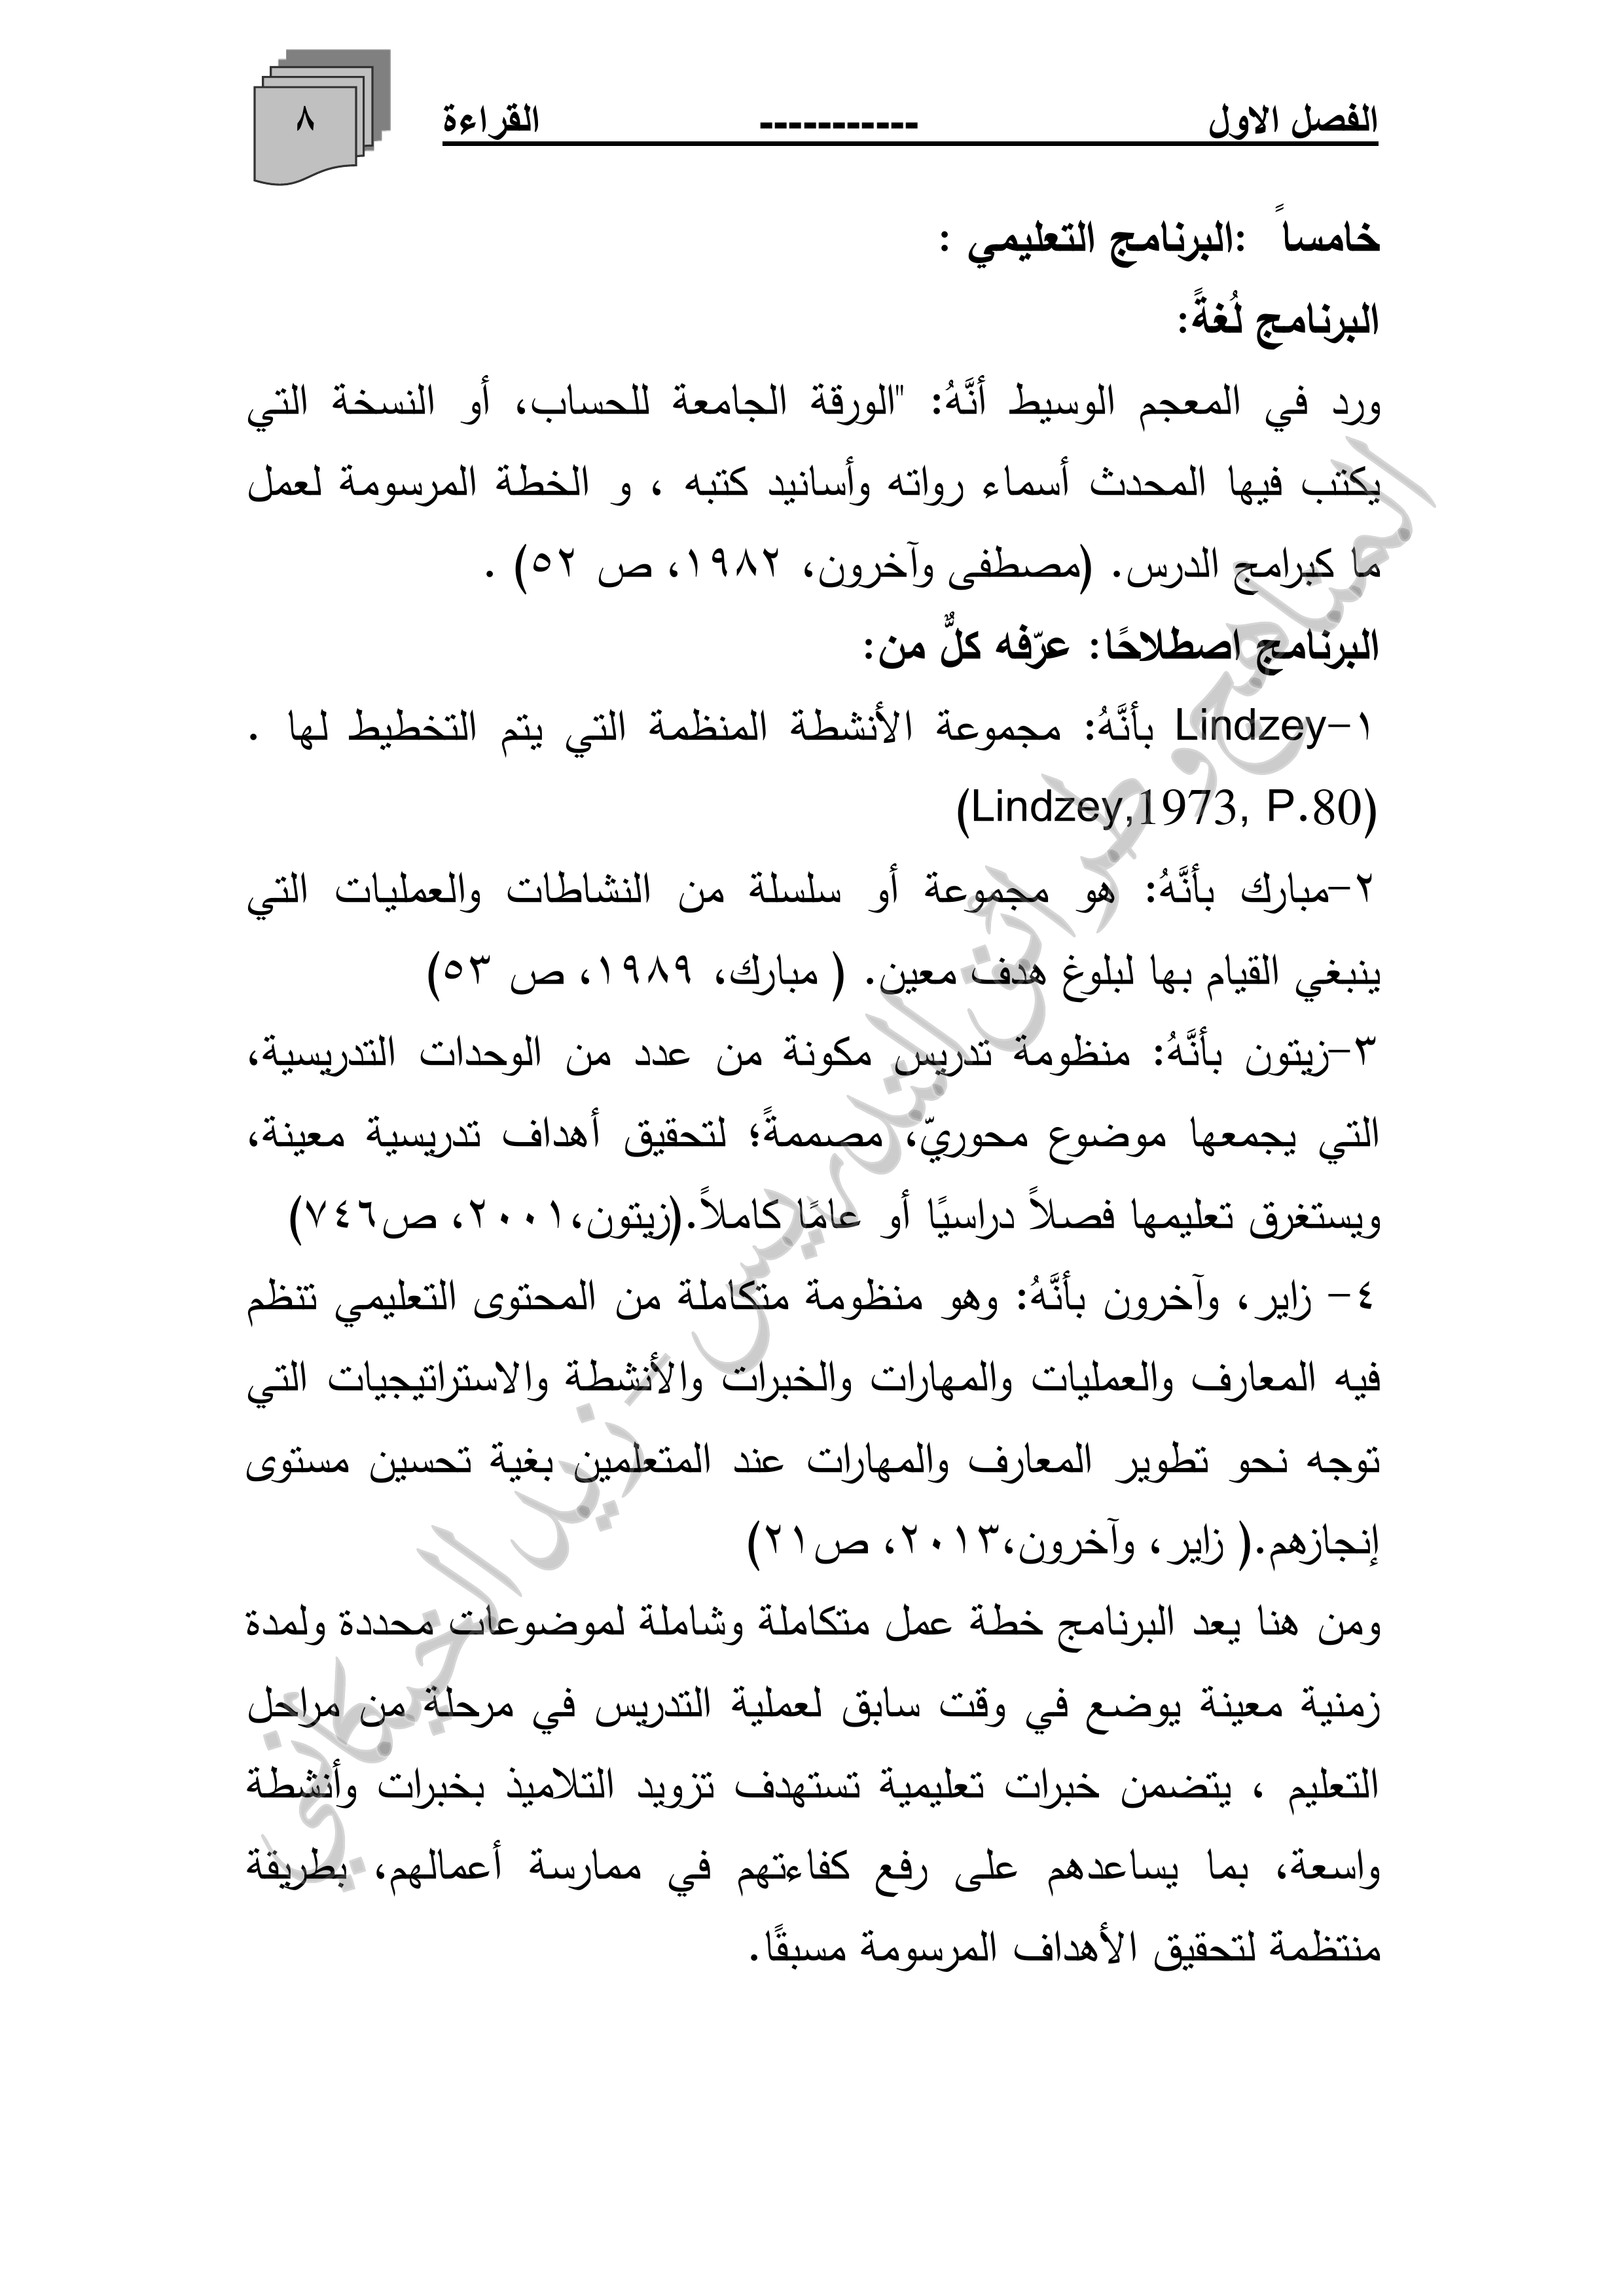 الفصل الاول ----------- القراءة ٨
خامساً :البرنامج التعليمي :
البرنامج لُغةً:
ورد في المعجم الوسيط أنَّهُ: "الورقة الجامعة للحساب، أو النسخة التي
يكتب فيها المحدث أسماء رواته وأسانيد كتبه ، و الخطة المرسومة لعمل
ما كبرامج الدرس. (مصطفى وآخرون، ١٩٨٢، ص ٥٢) .
البرنامج اصطلاحًا: عرّفه كلٌّ من:
١-Lindzey بأنَّهُ: مجموعة الأنشطة المنظمة التي يتم التخطيط لها .
(Lindzey,1973, P.80)
٢-مبارك بأنَّهُ: هو مجموعة أو سلسلة من النشاطات والعمليات التي
ينبغي القيام بها لبلوغ هدف معين. ( مبارك، ١٩٨٩، ص ٥٣)
٣-زيتون بأنَّهُ: منظومة تدريس مكونة من عدد من الوحدات التدريسية،
التي يجمعها موضوع محوريّ، مصممةً؛ لتحقيق أهداف تدريسية معينة،
ويستغرق تعليمها فصلاً دراسيًا أو عامًا كاملاً.(زيتون،٢٠٠١، ص٧٤٦)
٤- زاير، وآخرون بأنَّهُ: وهو منظومة متكاملة من المحتوى التعليمي تنظم
فيه المعارف والعمليات والمهارات والخبرات والأنشطة والاستراتيجيات التي
توجه نحو تطوير المعارف والمهارات عند المتعلمين بغية تحسين مستوى
إنجازهم.( زاير، وآخرون،٢٠١٣، ص٢١)
ومن هنا يعد البرنامج خطة عمل متكاملة وشاملة لموضوعات محددة ولمدة
زمنية معينة يوضع في وقت سابق لعملية التدريس في مرحلة من مراحل
التعليم ، يتضمن خبرات تعليمية تستهدف تزويد التلاميذ بخبرات وأنشطة
واسعة، بما يساعدهم على رفع كفاءتهم في ممارسة أعمالهم، بطريقة
منتظمة لتحقيق الأهداف المرسومة مسبقًا.
المناهج وطرائق التدريس - زيد الخيكاني